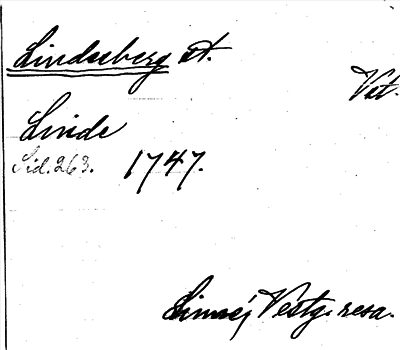 Lindesberg st.
Vst.
Linde
Sid. 263. 1747.
Linnéj Vestg. resa.